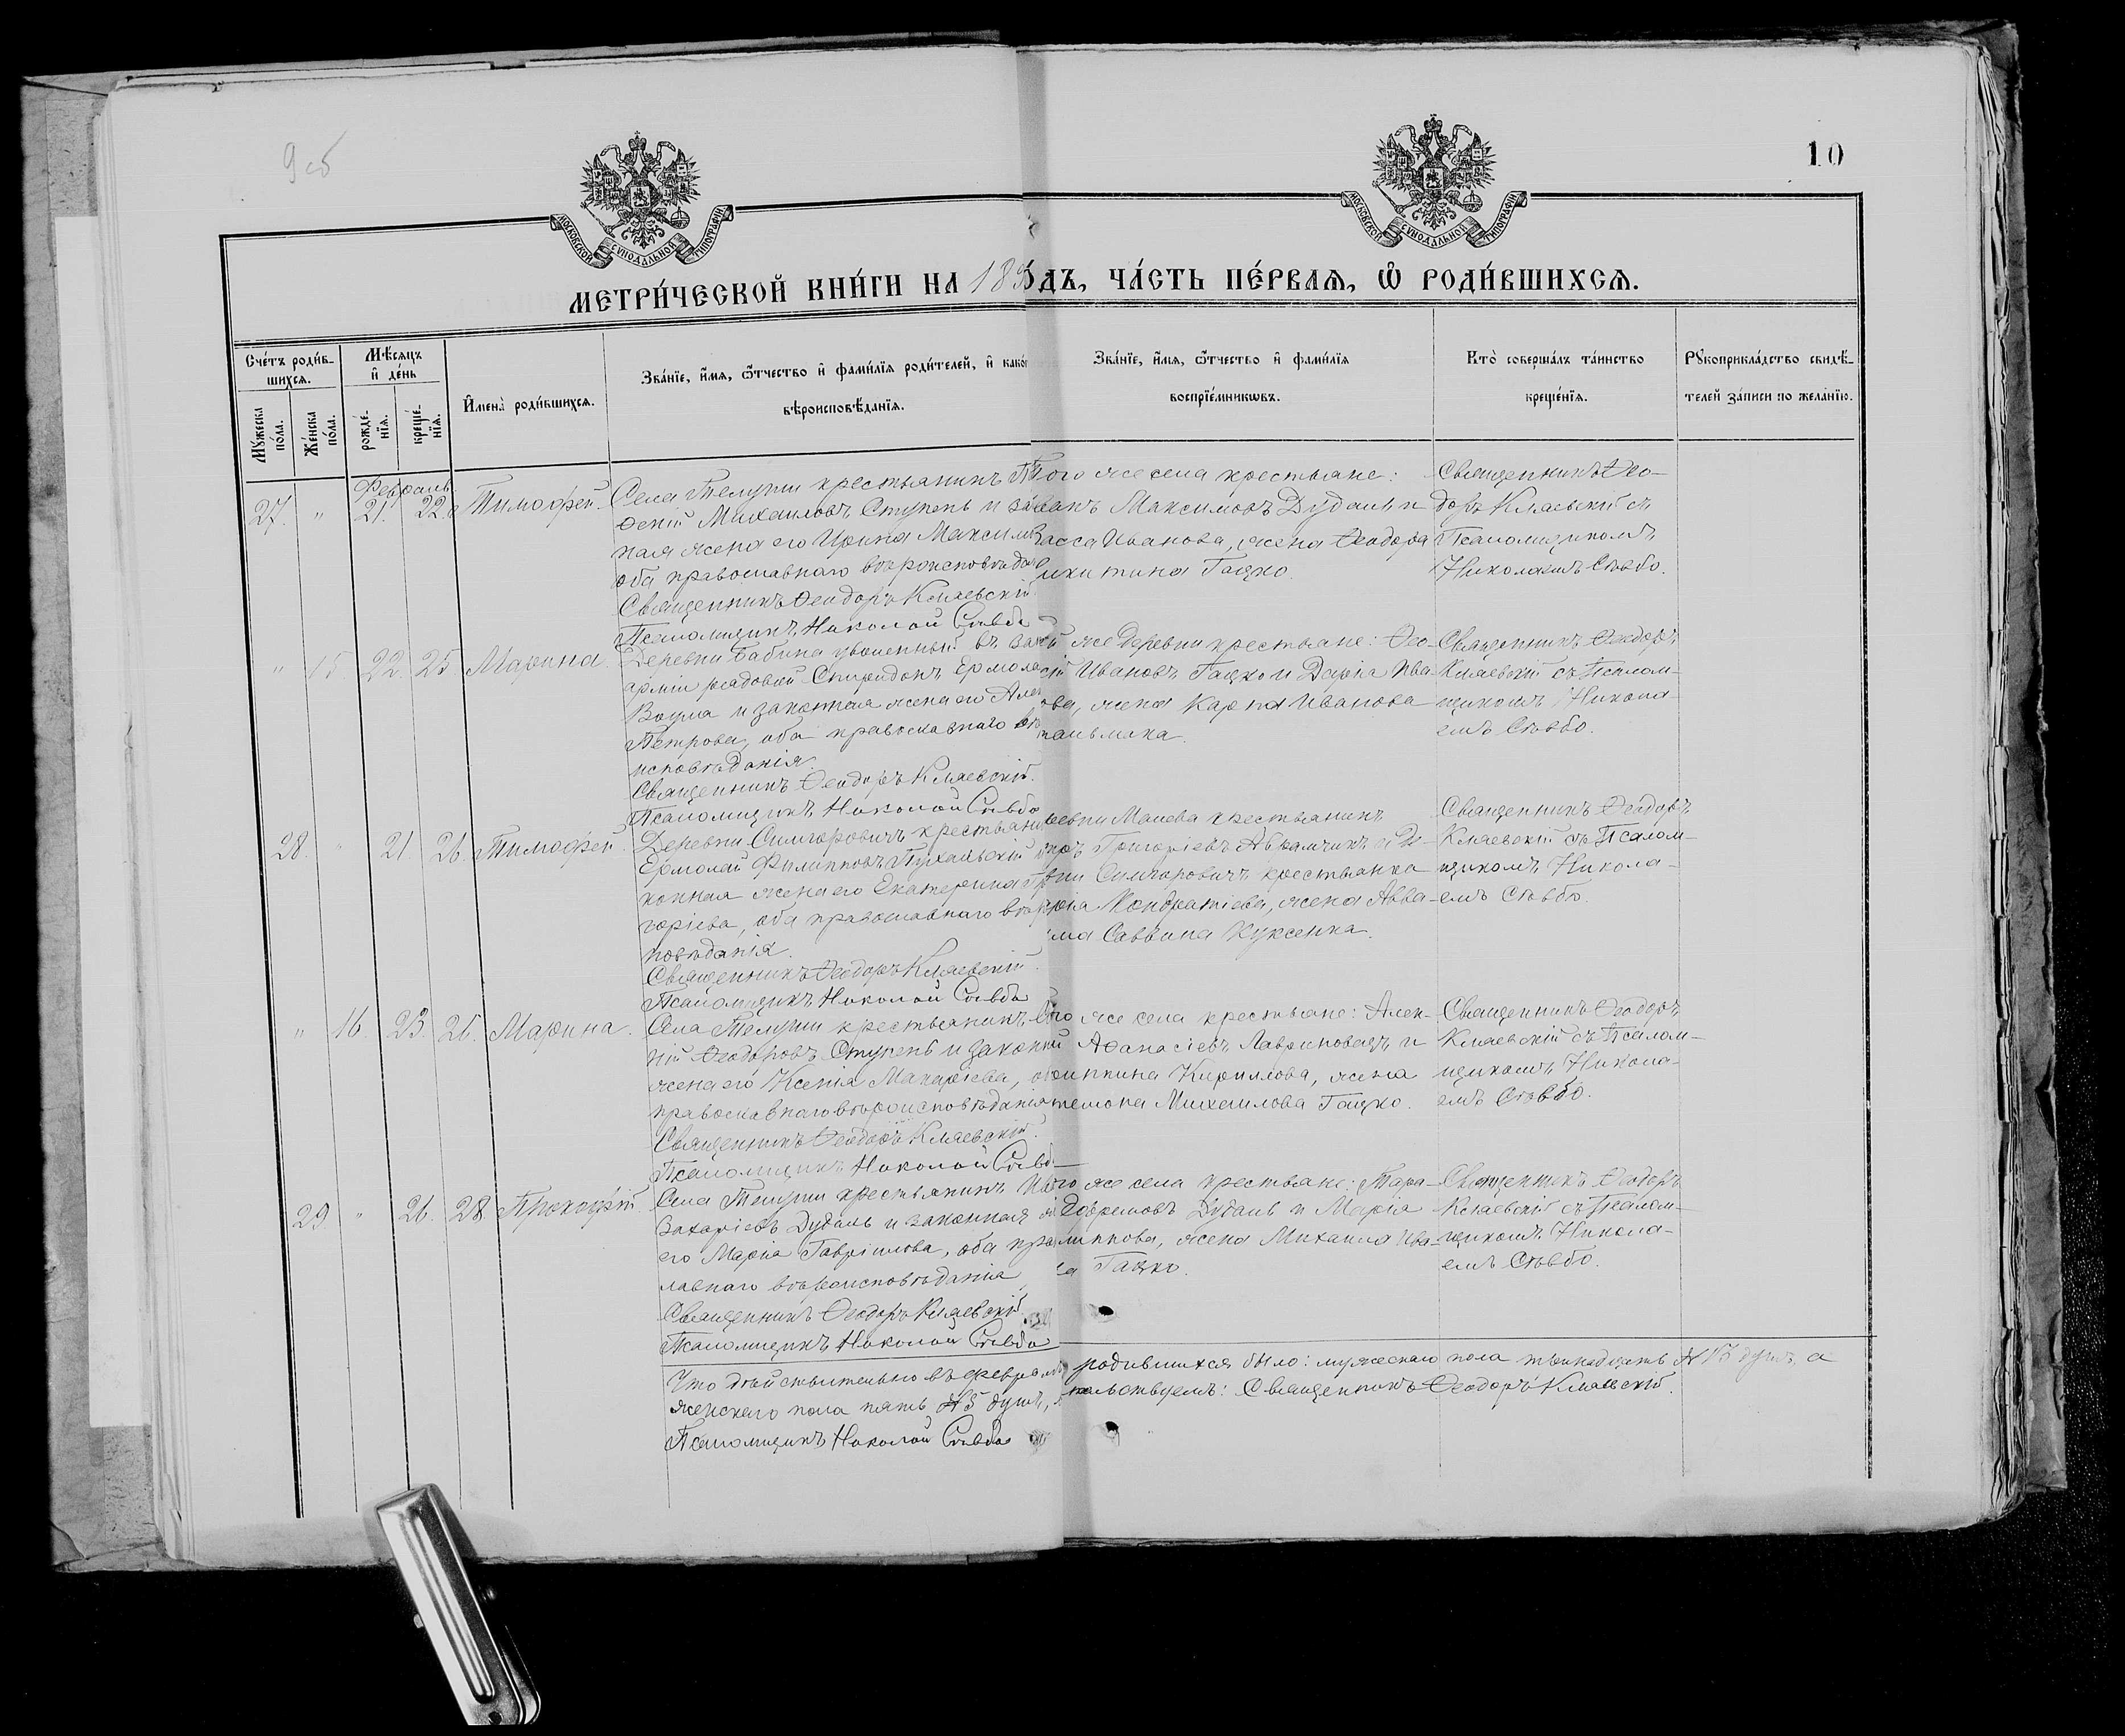 9об
10
МОСКОВСКОЙ СѴНОДАЛЬНОЙ ТИПОГРАФІИ
МОСКОВСКОЙ СѴНОДАЛЬНОЙ ТИПОГРАФІИ
МЕТРИ́ЧЕСКОЙ КНИ́ГИ НА 189
ДЪ, ЧА́СТЬ ПЕ́РВАѦ, Ѡ РОДИ́ВШИХСѦ.
Сче́тъ роди́в-
шихсѧ.
Мꙋ́жеска
по́ла.
Же́нска
по́ла.
Мѣ́сѧцъ
и҆ де́нь
рожде́-
нїѧ.
креще́-
нїѧ.
И҆мена̀ роди́вшихсѧ.
Зва́нїе, и҆́мѧ, ѻ҆́тчество и҆ фами́лїѧ роди́телей, и҆ како́
вѣроисповѣ́данїѧ.
Зва́нїе, и҆́мѧ, ѻ҆́тчество и҆ фами́лїѧ
воспрїе́мникѡвъ.
Кто̀ соверша́лъ та́инство
креще́нїѧ.
Рꙋкоприкла́дство свидѣ́-
телей за́писи по жела́нїю.
Февраль
27. " 21. 22. Тимоѳей.
Села Телуши крестьянинъ
ѳеній Михаиловъ Ступень и за
ная жена его Ирина Максимо
оба православнаго вѣроисповѣда
Священникъ Ѳеодоръ Кляевскій.
Псаломщикъ Николай Стѣбо
того же села крестьяне:
ванъ Максимовъ Дудаль и
асса Иванова, жена Ѳеодора
икитина Гацко.
Священникъ Ѳео-
доръ Кляевскій съ
Псаломщикомъ
Николаемъ Стѣбо.
" 15. 22. 25 Марина.
Деревни Бабина уволенный въ зап
арміи рядовой Спиридонъ Ермола
и законная жена его Але
Петрова, оба православнаго вѣ
исповѣданія.
Священникъ Ѳеодоръ Кляевскій.
Псаломщикъ Николай Стѣбо
й же деревни крестьяне: Ѳео-
сій Ивановъ Гацко и Дарія Ива-
ова, жена Карпа Иванова
Священникъ Ѳеодоръ
Кляевскій съ Псалом-
щикомъ Никола-
емъ Стѣбо.
28. " 21. 26. Тимоѳей.
Деревни Симгоровичъ крестьяни
Ермолай Филипповъ Пухальскій
конная жена его Екатерина Гри
горіева, оба православнаго вѣ
повѣданія.
Священникъ Ѳеодоръ Кляевскій.
Псаломщикъ Николай Стѣбо
ревни Малева крестьянинъ
Григоріевъ Абрамчикъ и Де-
вни Симгоровичъ крестьянка
Кондратіева, жена Авва-
ума Саввина Куксенка.
Священникъ Ѳеодоръ
Кляевскій съ Псалом-
щикомъ Никола-
емъ Стѣбо.
" 16. 23. 26. Марина.
Села Телуши крестьянинъ
ній Ѳеодоровъ Ступень и законн
жена его Ксенія Макаріева, об
православнаго вѣроисповѣданія
Священникъ Ѳеодоръ Кляевскій.
Псаломщикъ Николай Стѣбо
го же села крестьяне: Алек-
й Аѳанасіевъ Лавриновичъ и
Кириллова, жена
темона Михаилова Гацко.
Священникъ Ѳеодоръ
Кляевскій съ Псалом-
щикомъ Никола-
емъ Стѣбо.
29 " 26. 28. Прокофій.
Села Телуши крестьянинъ
Захаріевъ Дудаль и законная
его Марія Гавріилова, оба пра
лавнаго вѣроисповѣданія
Священникъ Ѳеодоръ Кляевскій.
Псаломщикъ Николай Стѣбо
го же села крестьяне: Тара-
Ефремовъ Дудаль и Марія
липпова, жена Михаила Ива-
ва Гацко.
Священникъ Ѳеодоръ
Кляевскій съ Псалом-
щикомъ Никола-
емъ Стѣбо.
Что дѣйствительно въ февралѣ родившихся было: мужескаго пола тринадцать № 13 душъ, а
женскаго пола пять № 5 душъ, тельствуемъ: Священникъ Ѳеодоръ Кляевскій.
Псаломщикъ Николай Стѣбо